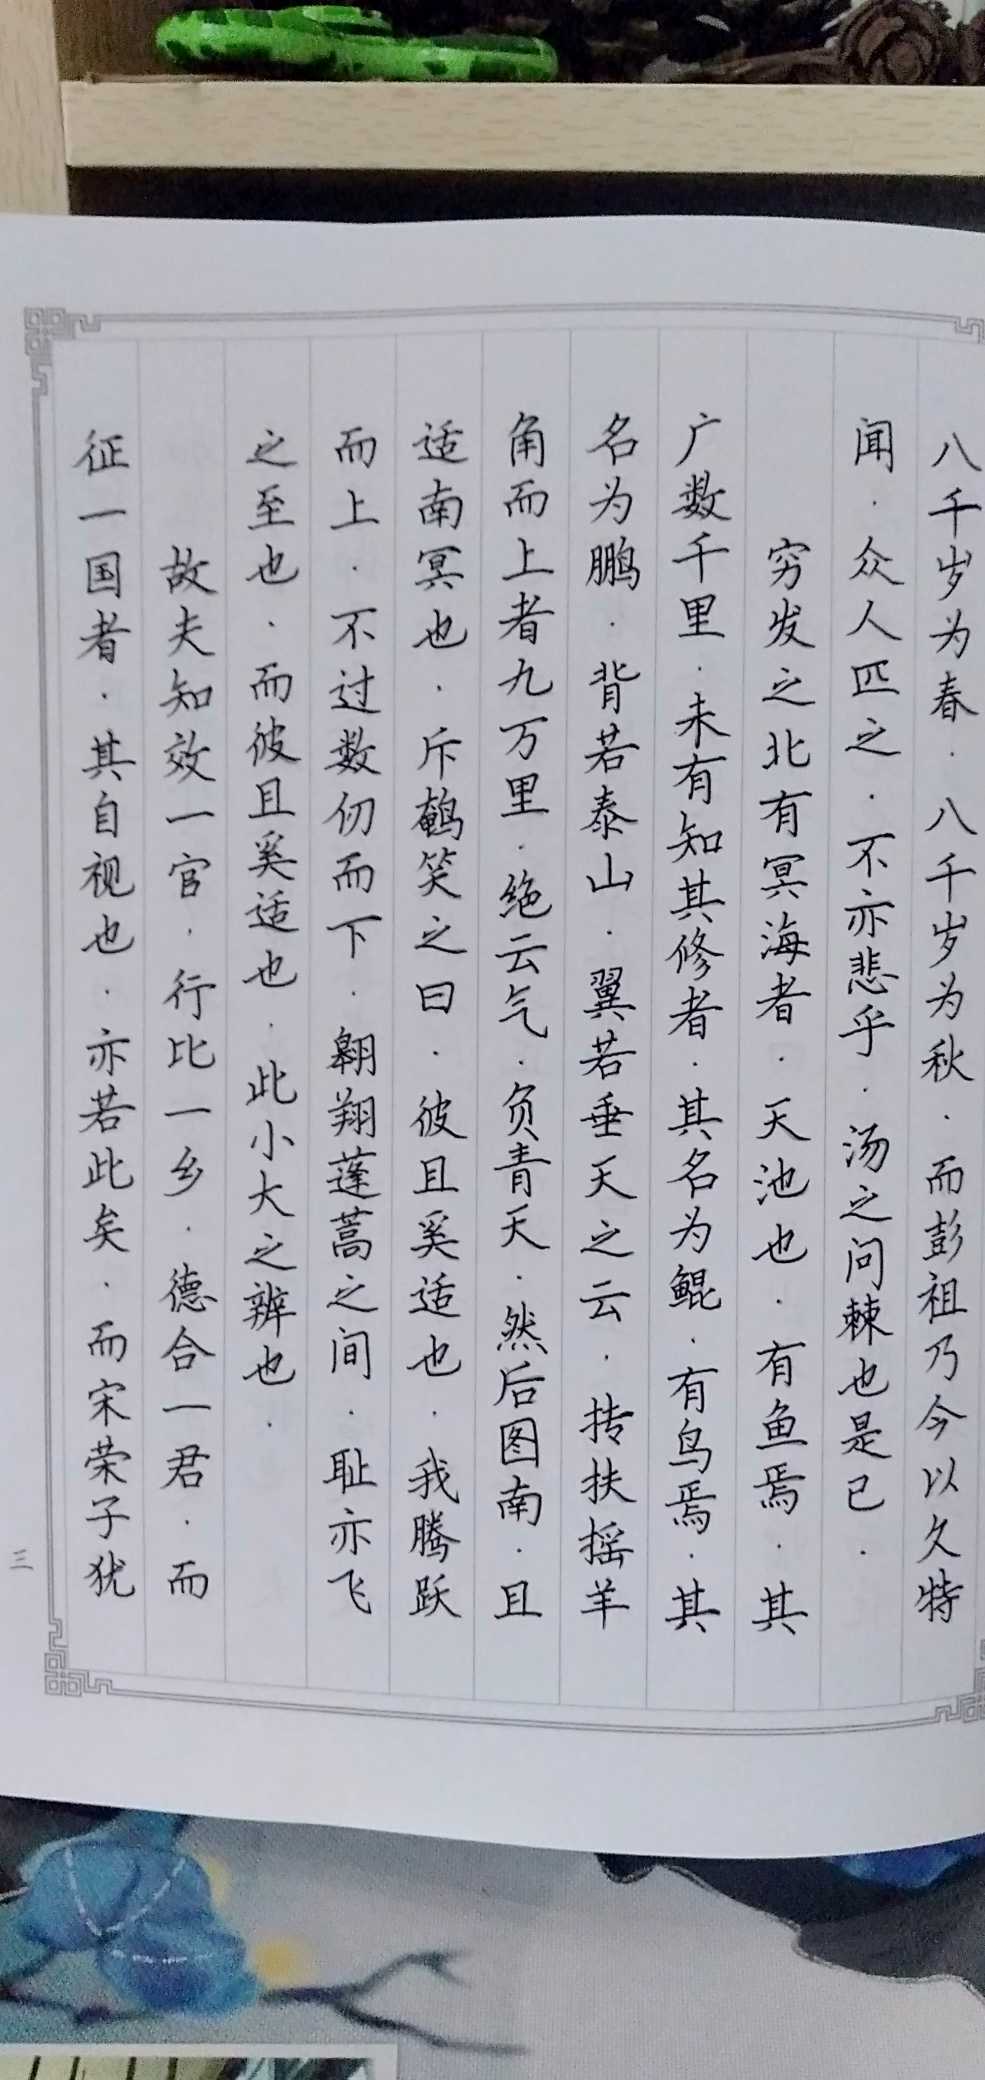 八千岁为春．八千岁为秋．而彭祖乃今以久特
闻．众人匹之．不亦悲乎．汤之问棘也是已．
穷发之北有冥海者．天池也．有鱼焉．其
广数千里．未有知其修者．其名为鲲．有鸟焉．其
名为鹏．背若泰山．翼若垂天之云．抟扶摇羊
角而上者九万里．绝云气．负青天．然后图南．且
适南冥也．斥鹌笑之曰．彼且奚适也．我腾跃
而上．不过数仞而下．翱翔蓬蒿之间．耻亦飞
之至也．而彼且奚适也．此小大之辨也．
故夫知效一官．行比一乡．德合一君．而
征一国者．其自视也．亦若此矣．而宋荣子犹
三